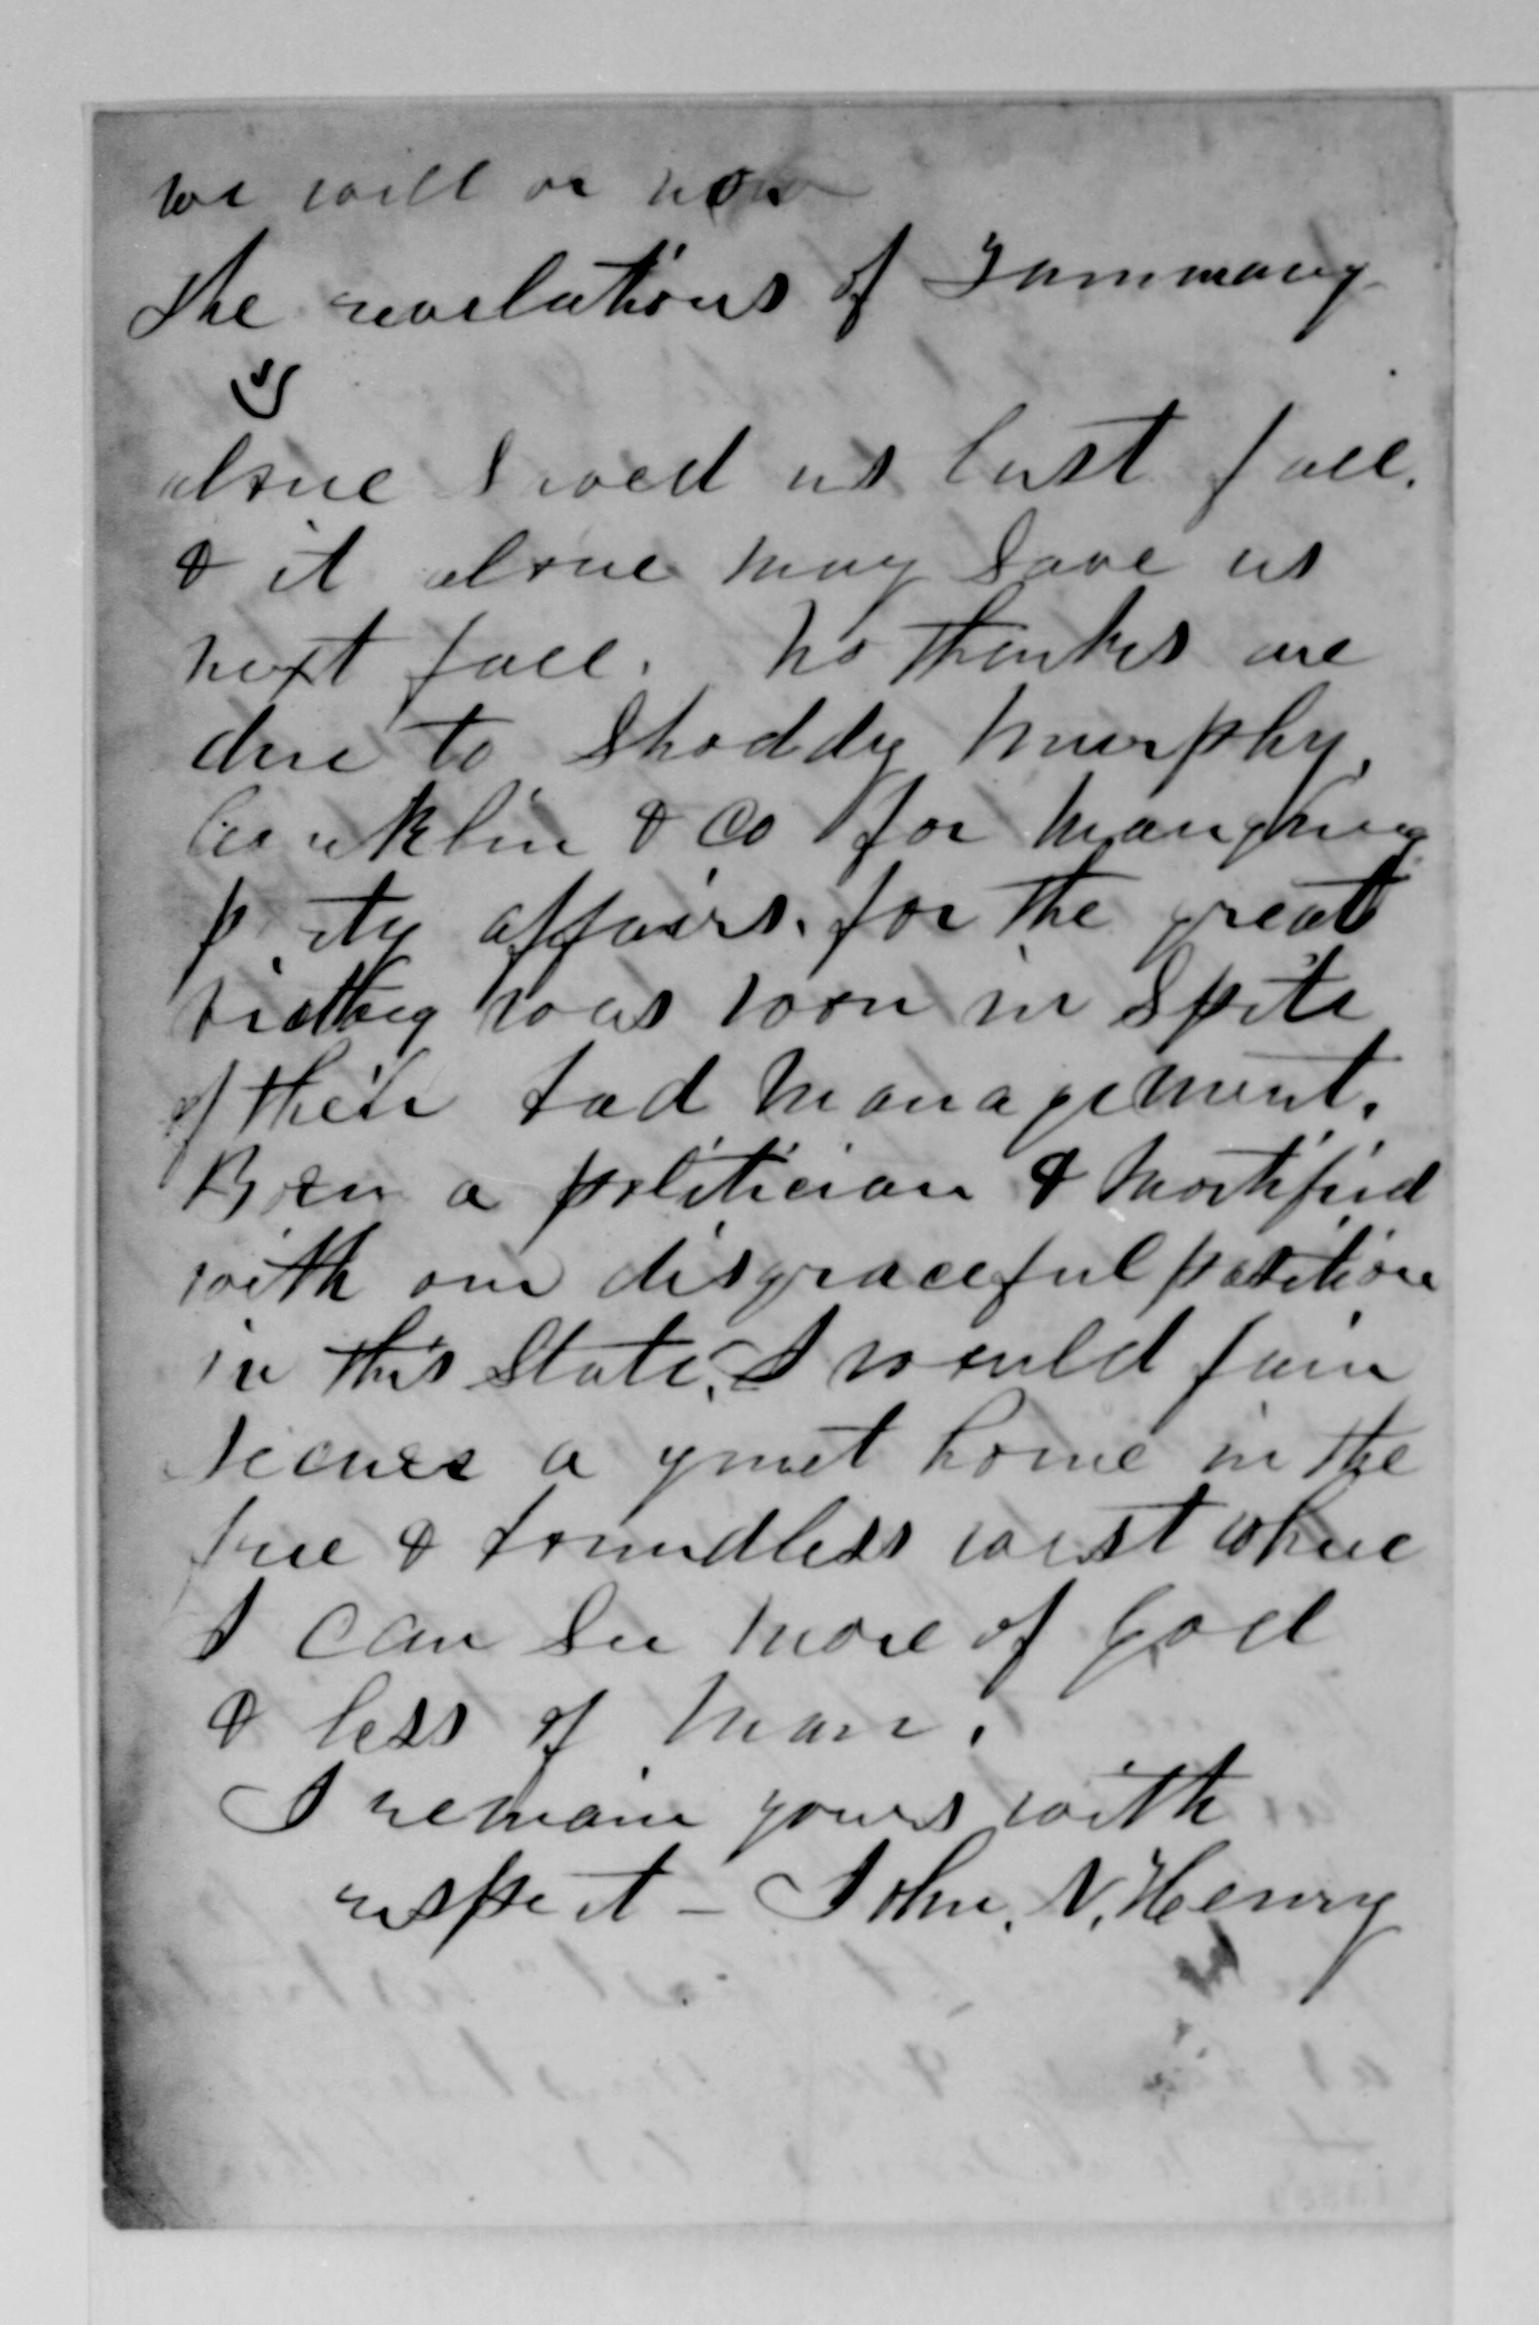 we will or now
The revelations of Tammany
3
alone saved us last fall.
& it alone may save us
next fall. No thanks are
due to Shoddy Murphy,
Conklin & Co for managing
party affairs. for the great
victory was won in spite
of their bad management.
Born a politician & mortified
with our disgraceful position
in this State, I would fain
secure a quiet home in the
free & boundless west where
I can see more of God
& less of man.
I remain yours with
respect - John. N. Henry